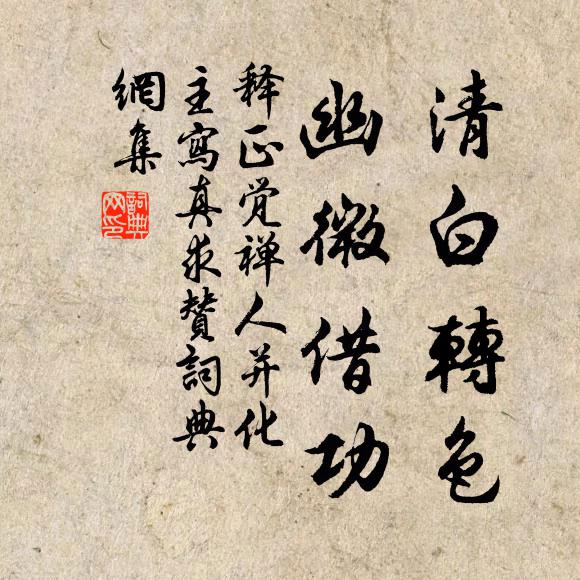 清白轉色
幽微借功
释正觉禅人并化
主寫真求赞詞典
網集
詞典
网印